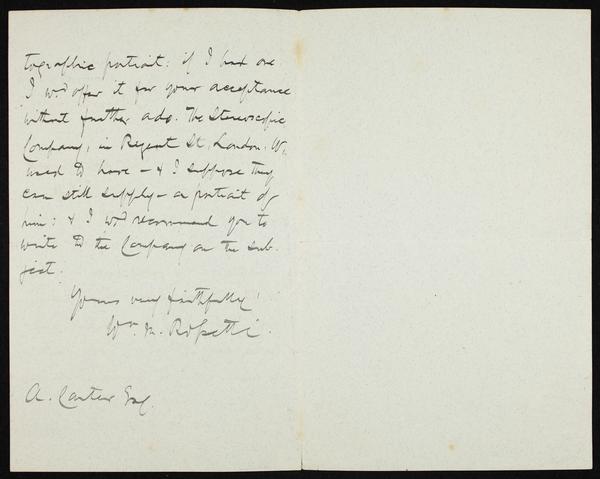 tographic portrait: if I had one
I wd. offer it for your acceptance
without further ado. The Stereoscopic
Company, in Regent St., London. W.,
used to have – & I suppose they
can still supply – a portrait of
him: & I wd. recommend you to
write to the Company on the sub-
ject.
Yours very faithfully,
Wm. M. Rossetti.
A. Carter Esq.